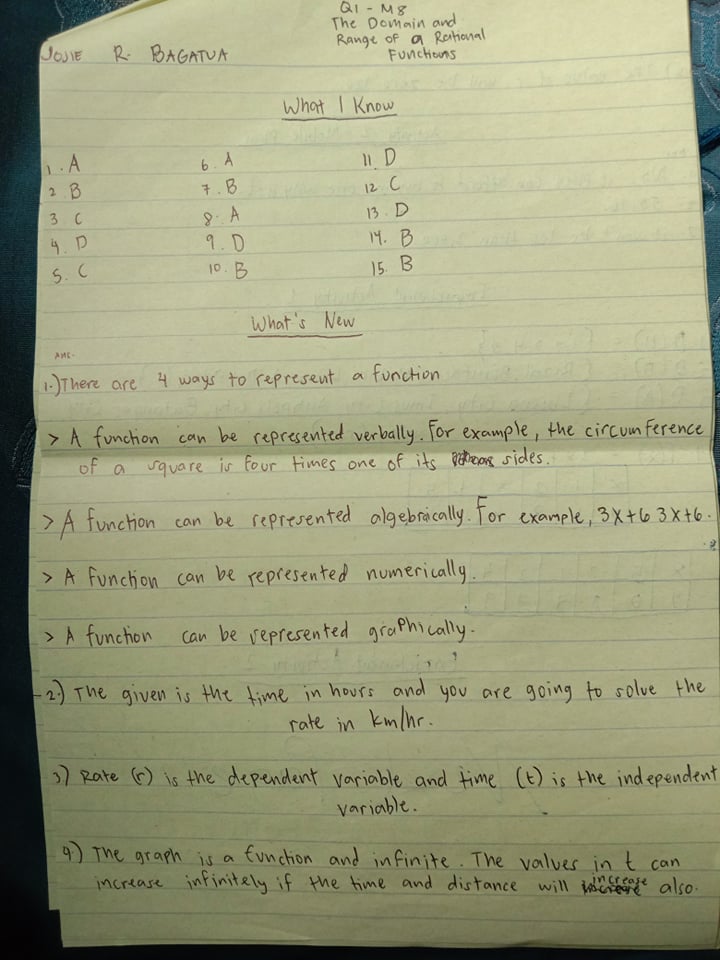 Q1 - M8
The Domain and
Range of a Rational
Functions
JOSIE R. BAGATUA
What I Know
1. A 6. A 11. D
2 B 7. B 12 C
3 C 8. A 13. D
4. D 9. D 14. B
5. C 10. B 15. B
What's New
ANS.
1.) There are 4 ways to represent a function
> A function can be represented verbally. For example, the circumference
of a square is four times one of its sides.
> A function can be represented algebraically. For example, 3x+6 3x+6.
> A function can be represented numerically.
> A function can be represented graphically.
2.) The given is the time in hours and you are going to solve the
rate in km/hr.
3) Rate (r) is the dependent variable and time (t) is the independent
variable.
4.) The graph is a function and infinite. The values in t can
increase infinitely if the time and distance will increase also.